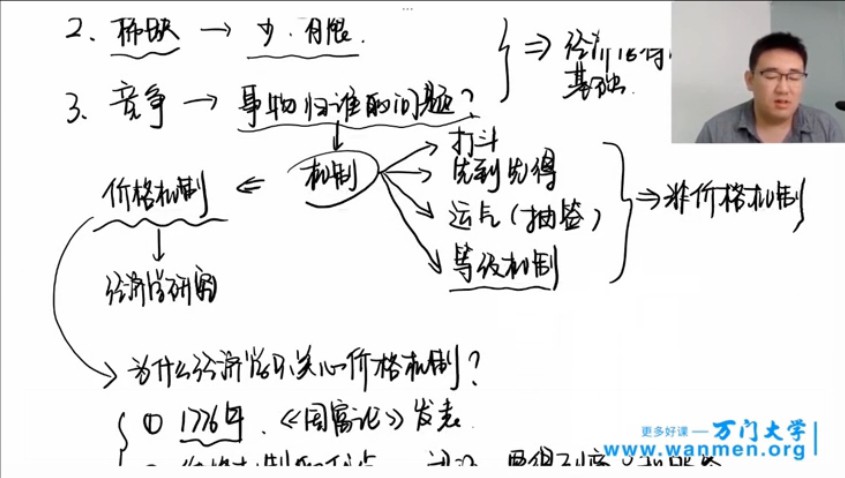 2、稀缺 → 少、有限.
3、竞争 → 事物归谁的问题?
基础.
机制
打斗
先到先得
运气(抽签)
等级机制
⇒ 非价格机制
价格机制 ⇐
经济学研究
为什么经济学只关心价格机制?
① 1776年、《国富论》发表.
更多好课 — 万门大学
www.wanmen.org